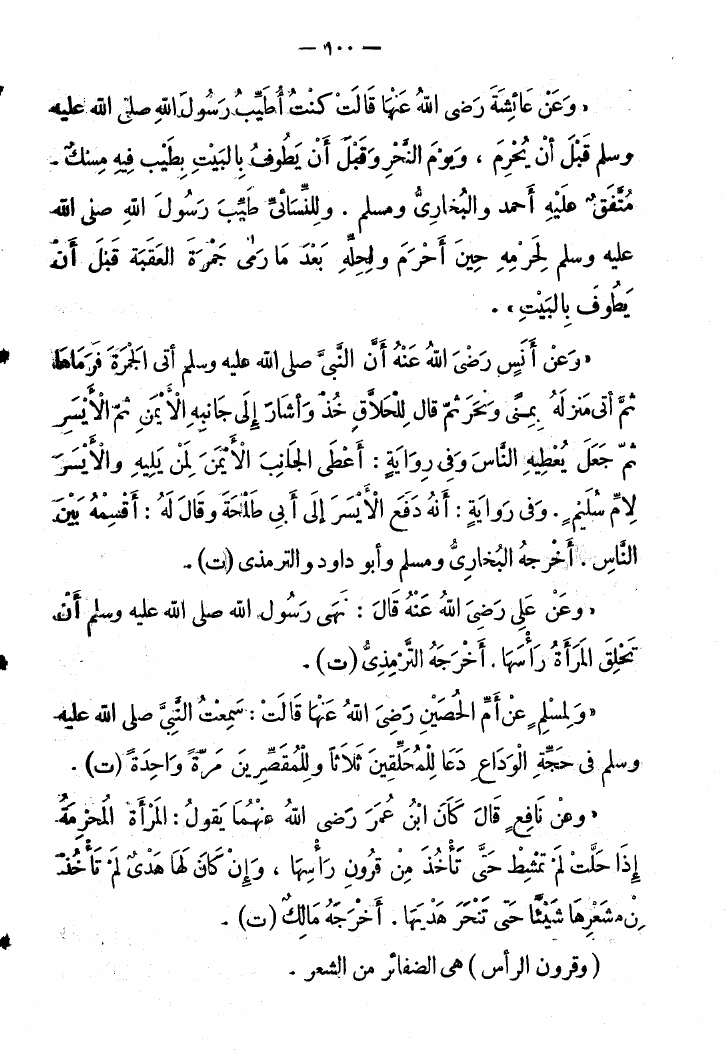 — ٦٠٠ —
«وَعَنْ عَائِشَةَ رَضى اللهُ عَنْهَا قَالَتْ كُنْتُ أُطَيِّبُ رَسُولَ اللهِ صلى الله عليه
وسلم قَبْلَ أَنْ يُحْرِمَ ، وَيَوْمَ النَّحْرِ وَقَبْلَ أَنْ يَطُوفَ بِالبَيْتِ بِطِيبٍ فِيهِ مِسْكٌ .
مُتَّفَقٌ عَلَيْهِ أحمد والبُخارىُّ ومسلم . وَلِلنِّسَائىِّ طَيَّبَ رَسُولَ اللهِ صلى الله
عليه وسلم لِحَرْمِهِ حِينَ أَحْرَمَ وَلِحِلِّهِ بَعْدَ مَا رَمَى جَمْرَةَ العَقَبَة قَبْلَ أَنْ
يَطُوفَ بِالبَيْتِ» .
«وَعَنْ أَنَسٍ رَضَىَ اللهُ عَنْهُ أَنَّ النَّبِىَّ صلى الله عليه وسلم أَتَى الجَمْرَةَ فَرَمَاهَا
ثُمَّ أَتَى مَنْزِلَهُ بِمِنًى وَنَحَرَ ثُمَّ قال لِلْحَلَّاقِ خُذْ وَأَشَارَ إِلَى جَانِبِهِ الأَيْمَنِ ثُمَّ الأَيْسَرِ
ثُمَّ جَعَلَ يُعْطِيهِ النَّاسَ وَفى رِوَايَةٍ : أَعْطَى الجَانِبَ الأَيْمَنَ لِمَنْ يَلِيهِ والأَيْسَرَ
لِأُمِّ سُلَيْمٍ . وَفى رَوايَةٍ : أَنَّهُ دَفَعَ الأَيْسَرَ إِلَى أَبى طَلْحَةَ وَقَالَ لَهُ : أَقْسِمْهُ بَيْنَ
النَّاسِ . أَخْرَجهُ البُخارىُّ ومسلم وأبو داود والترمذى (ت) .
«وَعَنْ عَلِى رَضِىَ اللهُ عَنْهُ قَالَ : نَهَى رَسُول الله صلى الله عليه وسلم أَنْ
تَحْلِقَ المَرْأَةُ رَأْسَهَا . أَخْرَجَهُ التِّرْمِذِىُّ (ت) .
«وَلِمسْلِمٍ عَنْ أُمِّ الحُصَيْنِ رَضِىَ اللهُ عَنْهَا قَالَتْ : سَمِعْتُ النَّبِىَّ صلى الله عليه
وسلم فى حَجَّةِ الْوَدَاعِ دَعَا لِلْمُحَلِّقِينَ ثَلَاثاً وللْمُقَصِّرِينَ مَرَّةً وَاحِدَةً (ت) .
«وعَنْ نَافِعٍ قَالَ كَانَ ابْنُ عُمَرَ رَضى اللهُ عَنْهُمَا يَقولُ : المَرْأَةُ المُحْرِمَةُ
إِذَا حَلَّتْ لَمْ تَمْشِطْ حَتَّى تَأْخُذَ مِنْ قُرُونِ رَأْسِهَا ، وَإِنْ كَانَ لَهَا هَدْىٌ لَمْ تَأْخُذْ
مِنْ شَعْرِهَا شَيْئًا حَتَّى تَنْحَرَ هَدْيَهَا . أَخْرَجَهُ مَالِكٌ (ت) .
(وقرون الرأس) هى الضفائر من الشعر .